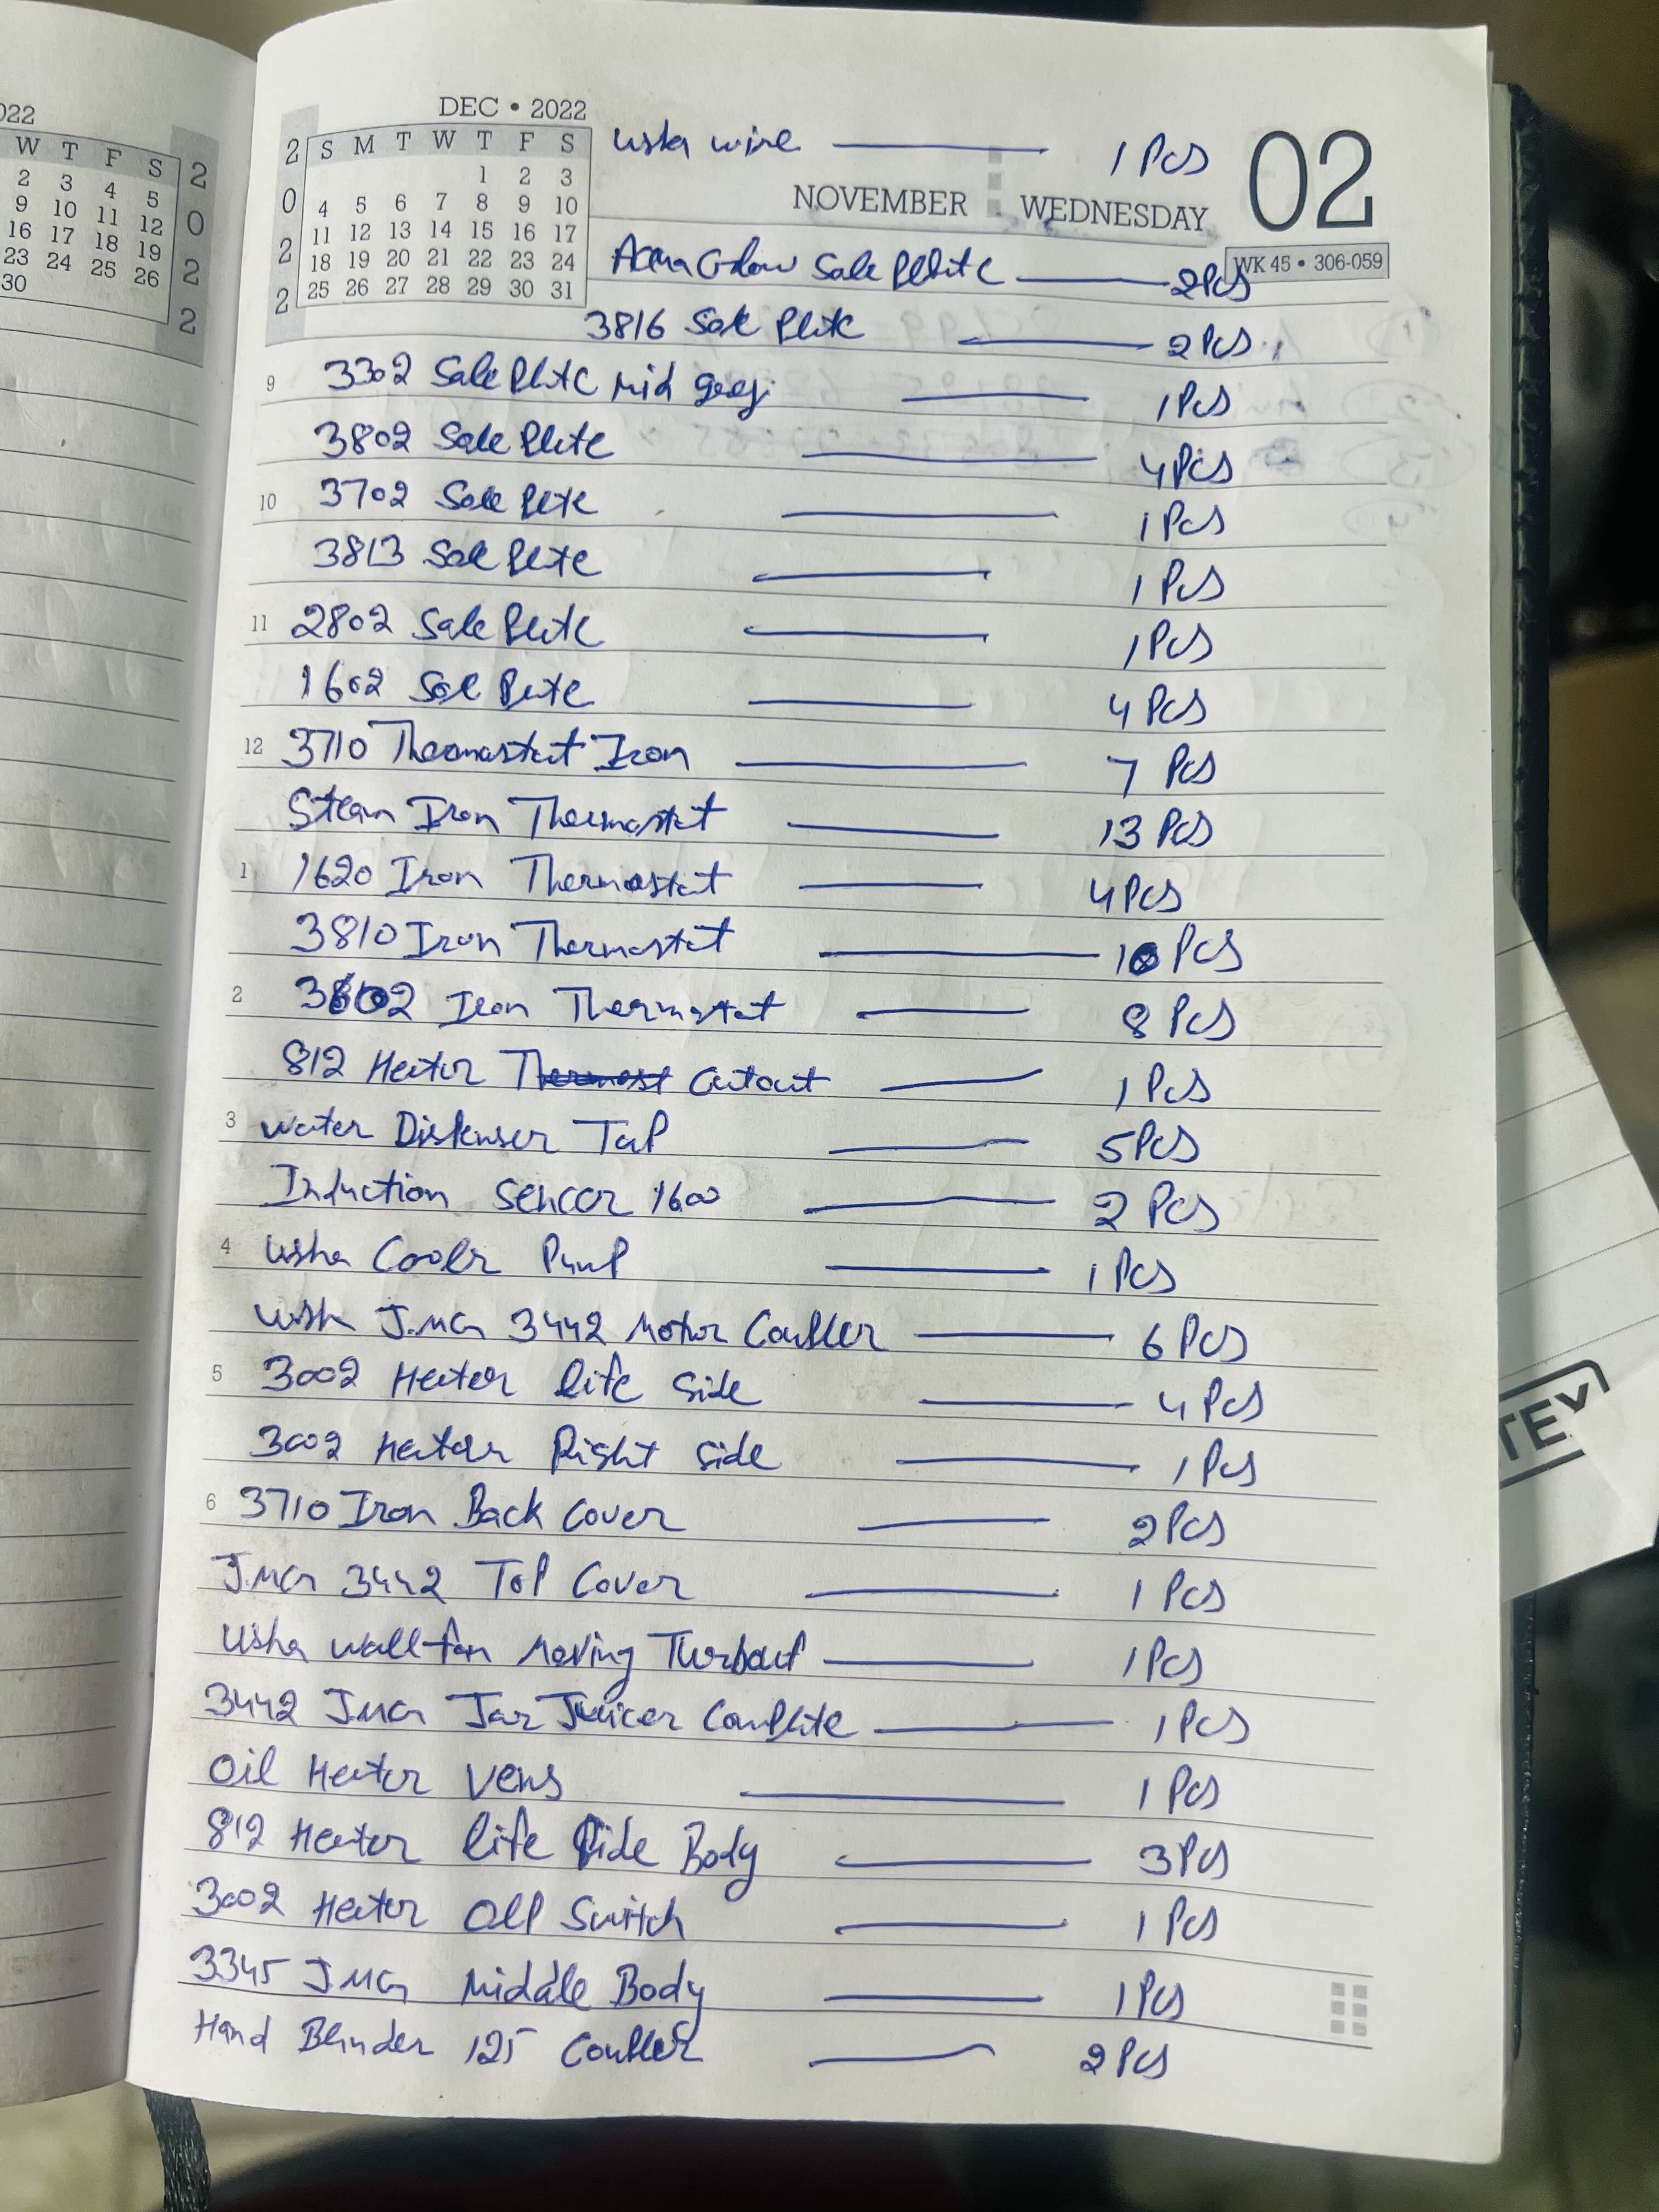 022
W T F S
2 3 4 5
9 10 11 12
16 17 18 19
23 24 25 26
30
2 0 2 2
DEC • 2022
2 0 2 2
S M T W T F S
1 2 3
4 5 6 7 8 9 10
11 12 13 14 15 16 17
18 19 20 21 22 23 24
25 26 27 28 29 30 31
Usha wire — 1 Pcs
NOVEMBER WEDNESDAY 02
WK 45 • 306-059
Glow Sale Plitc — 2 Pcs
3816 Sole Plitc — 2 Pcs
9 3302 Sale Plitc Mid — 1 Pcs
3802 Sale Plite — 4 Pcs
10 3702 Sole Plite — 1 Pcs
3813 Sole Plite — 1 Pcs
11 2802 Sale Plite — 1 Pcs
1602 Sol Plite — 4 Pcs
12 3710 Thermostat Iron — 7 Pcs
Steam Iron Thermostat — 13 Pcs
1 1620 Iron Thermostat — 4 Pcs
3810 Iron Thermostat — 10 Pcs
2 Iron Thermostat — 8 Pcs
812 Heter Thermost Cutout — 1 Pcs
3 water Dispenser Tap — 5 Pcs
Induction Sencor 1600 — 2 Pcs
4 Usha Coolr Pump — 1 Pcs
Ush J.M.G 3442 Motor Coupler — 6 Pcs
5 3002 Heter life Side — 4 Pcs
3002 Heter Right Side — 1 Pcs
6 3710 Iron Back Cover — 2 Pcs
J.M.G 3442 Top Cover — 1 Pcs
Usha wall fan Moving — 1 Pcs
3442 J.M.G Jar Juicer Complite — 1 Pcs
Oil Heter Vens — 1 Pcs
812 Heter life Side Body — 3 Pcs
3002 Heter Switch — 1 Pcs
3345 J.M.G Middle Body — 1 Pcs
Hand Blinder 125 Coupler — 2 Pcs
TE